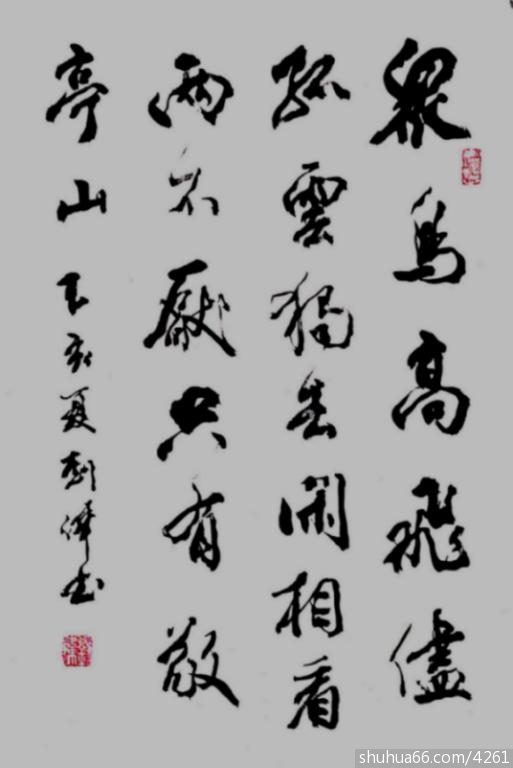 眾鳥高飛儘
孤雲獨去閒相看
兩不厭只有敬
亭山 乙亥夏 劉偉書
shuhua66.com/4261